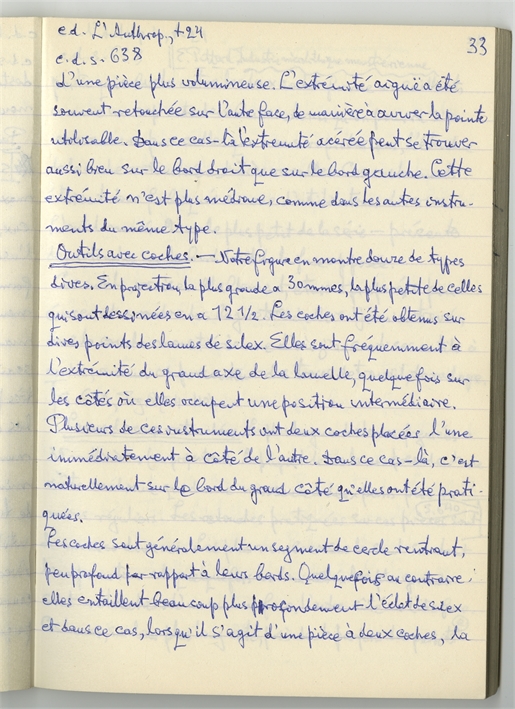 33
e.d. L'Anthrop., t 24
c.d.s. 638
d'une pièce plus volumineuse. L'extrémité aiguë a été
souvent retouchée sur l'autre face, de manière à aviver la pointe
utilisable. Dans ce cas-là l'extrémité acérée peut se trouver
aussi bien sur le bord droit que sur le bord gauche. Cette
extrémité n'est plus médiane, comme dans les autres instru-
ments du même type.
Outils avec coches. — Notre figure en montre douze de types
divers. En projection, la plus grande a 30 mmes, la plus petite de celles
qui sont dessinées en a 12 1/2. Les coches ont été obtenus sur
divers points des lames de silex. Elles sont fréquemment à
l'extrémité du grand axe de la lamelle, quelquefois sur
les côtés où elles occupent une position intermédiaire.
Plusieurs de ces instruments ont deux coches placées l'une
immédiatement à côté de l'autre. Dans ce cas-là, c'est
naturellement sur le bord du grand côté qu'elles ont été prati-
quées.
Les coches sont généralement un segment de cercle rentrant,
peu profond par rapport à leurs bords. Quelquefois au contraire,
elles entaillent beaucoup plus profondement l'éclat de silex
et dans ce cas, lorsqu'il s'agit d'une pièce à deux coches, la